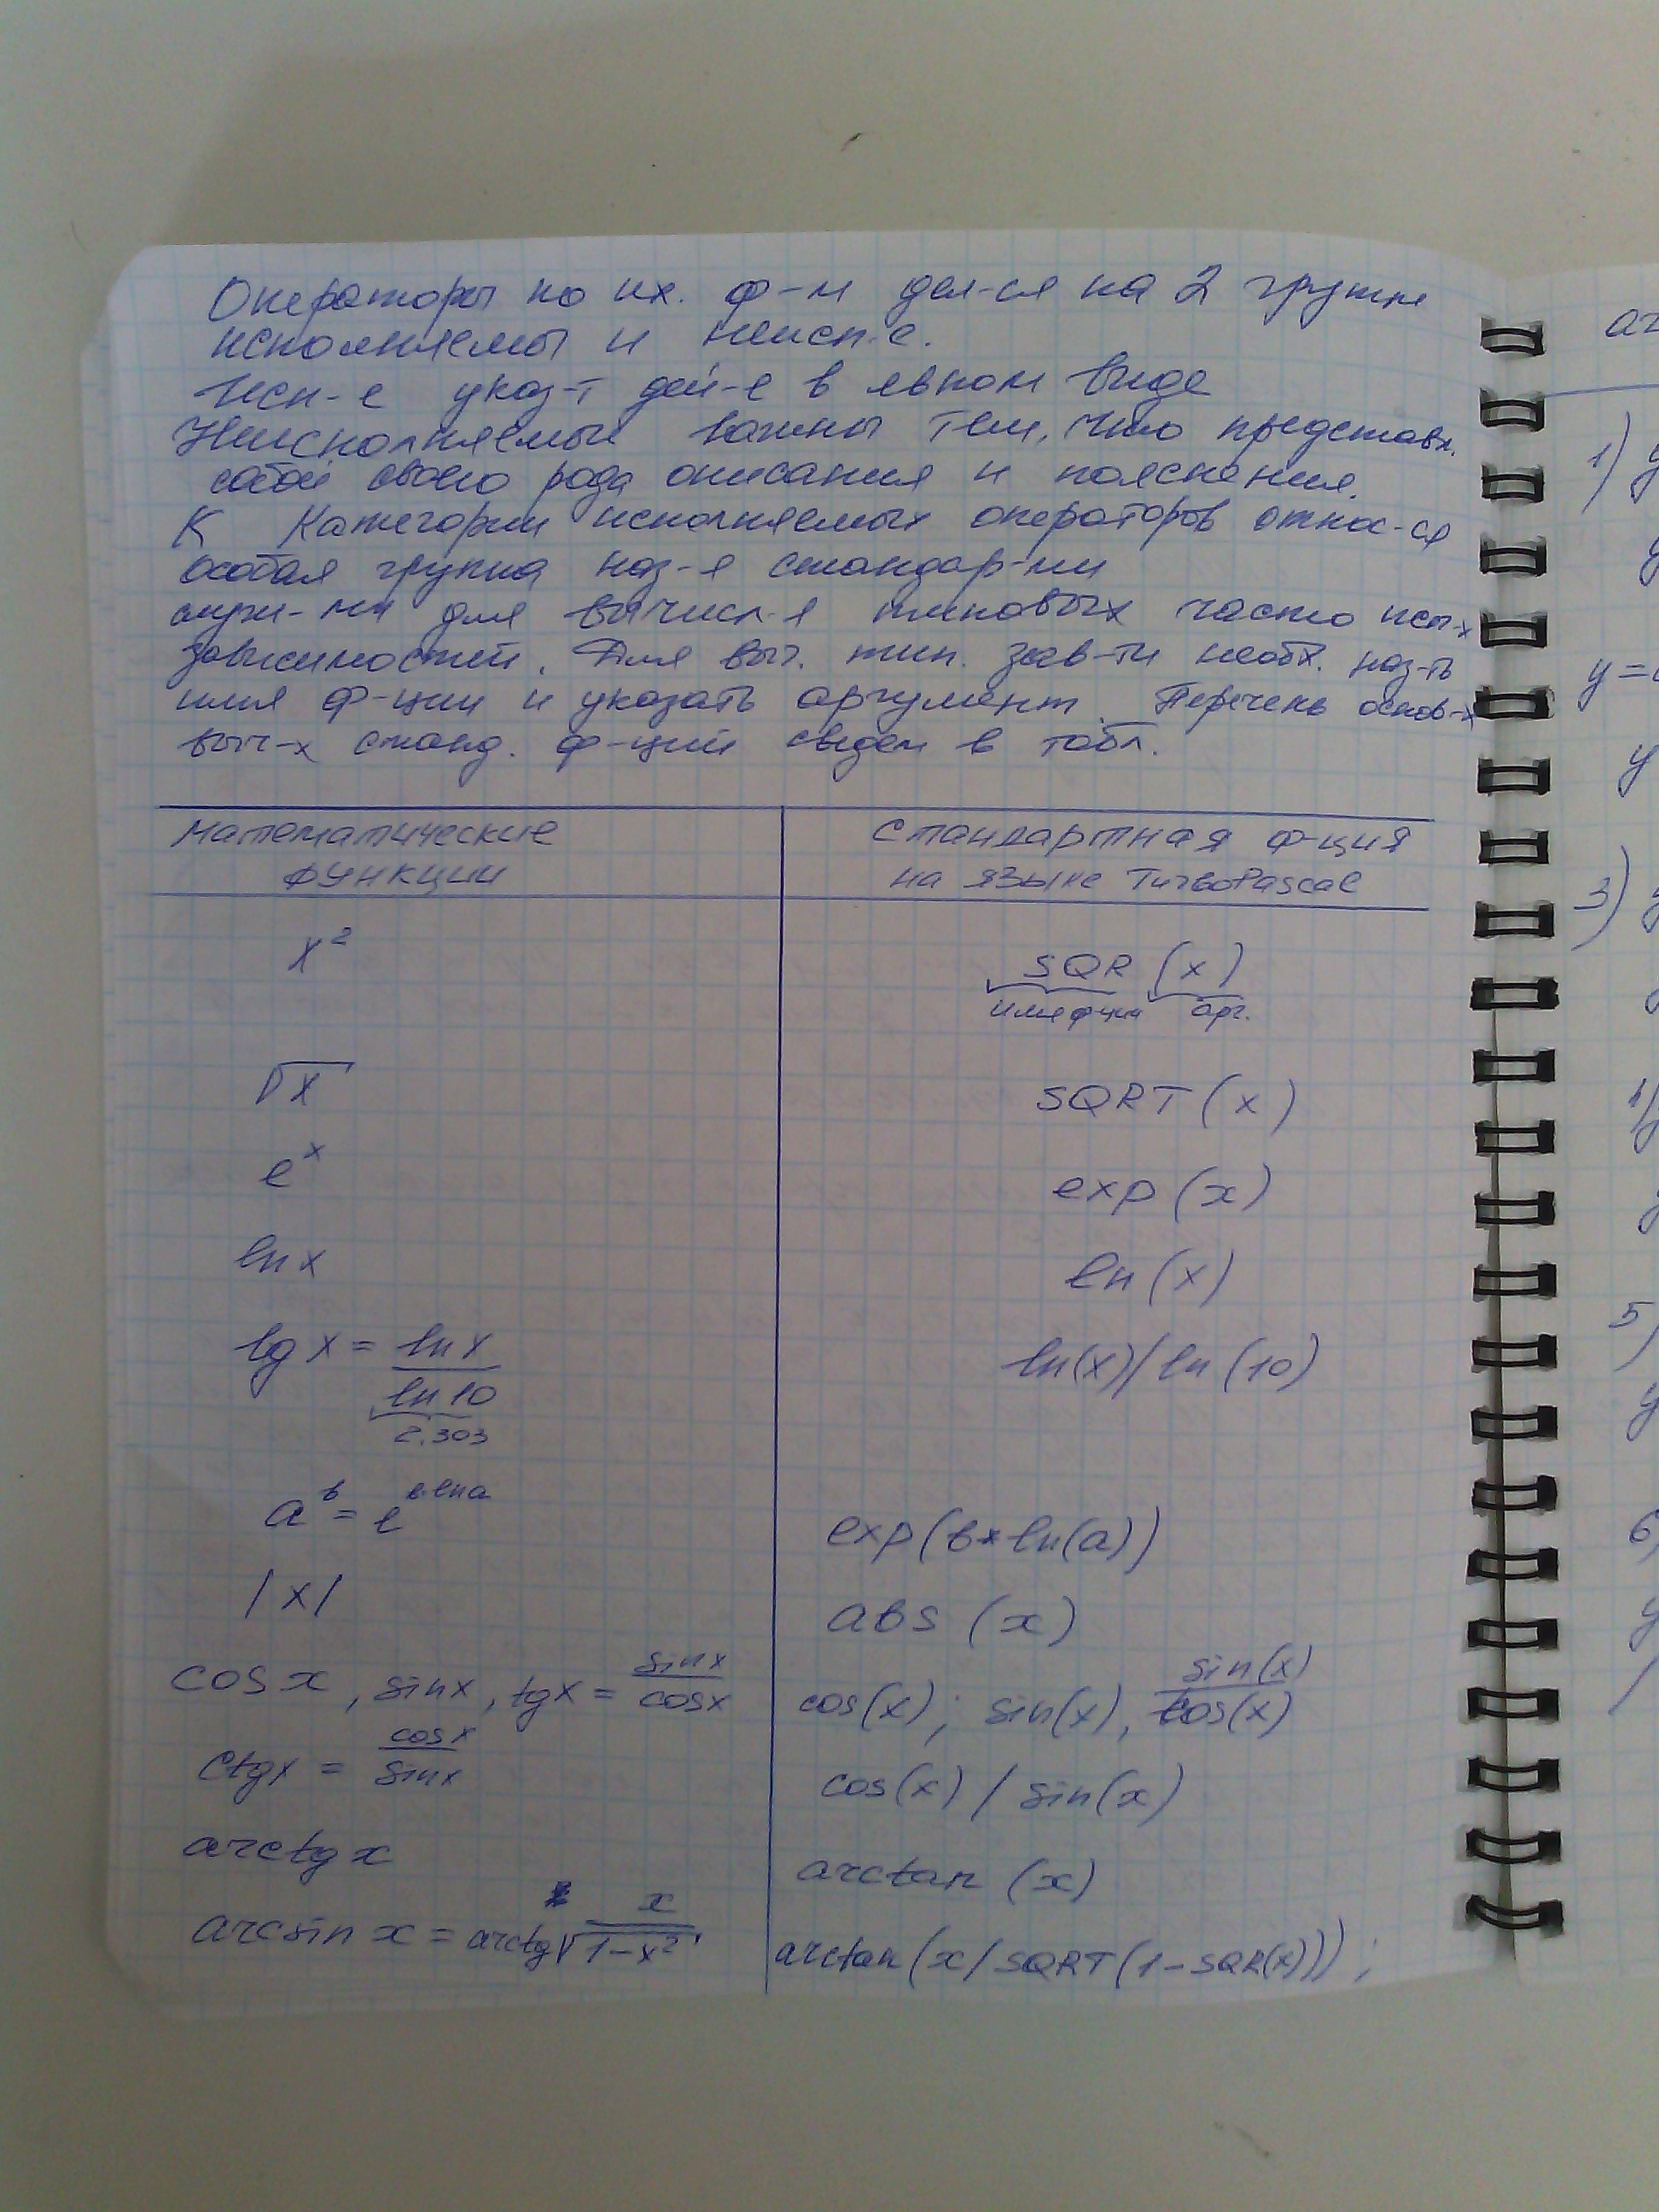 Операторы по их. ф-м дел-ся на 2 группы
исполняемы и неисп-е.
Исп-е указ-т дей-е в явном виде
Неисполняемые важны тем, что представл.
собой своего рода описания и пояснения.
К категории исполняемых операторов относ-ся
особая группа наз-я стандар-ми
для вычисл-я типовых часто исп-х
зависимостей. Для выч. тип. зав-ти необх. наз-ть
имя ф-ции и указать аргумент. Перечень основ-х
выч-х станд. ф-ций сведен в табл.
Математические функции
Стандартная ф-ция на языке TurboPascal
x²
SQR (x)
имя ф-ции арг.
√x
SQRT (x)
e^x
exp (x)
ln x
ln (x)
lg x = ln x / ln 10
2.303
ln(x)/ln(10)
a^в = e^в·ln a
exp(в*ln(a))
|x|
abs (x)
cos x, sin x, tg x = sin x / cos x
cos(x); sin(x), sin(x) / cos(x)
ctg x = cos x / sin x
cos(x) / sin(x)
arctg x
arctan (x)
arcsin x = arctg x / √1-x²
arctan(x/SQRT(1-SQR(x)));
1) y
y=
y
3) y
5)
y
6)
y